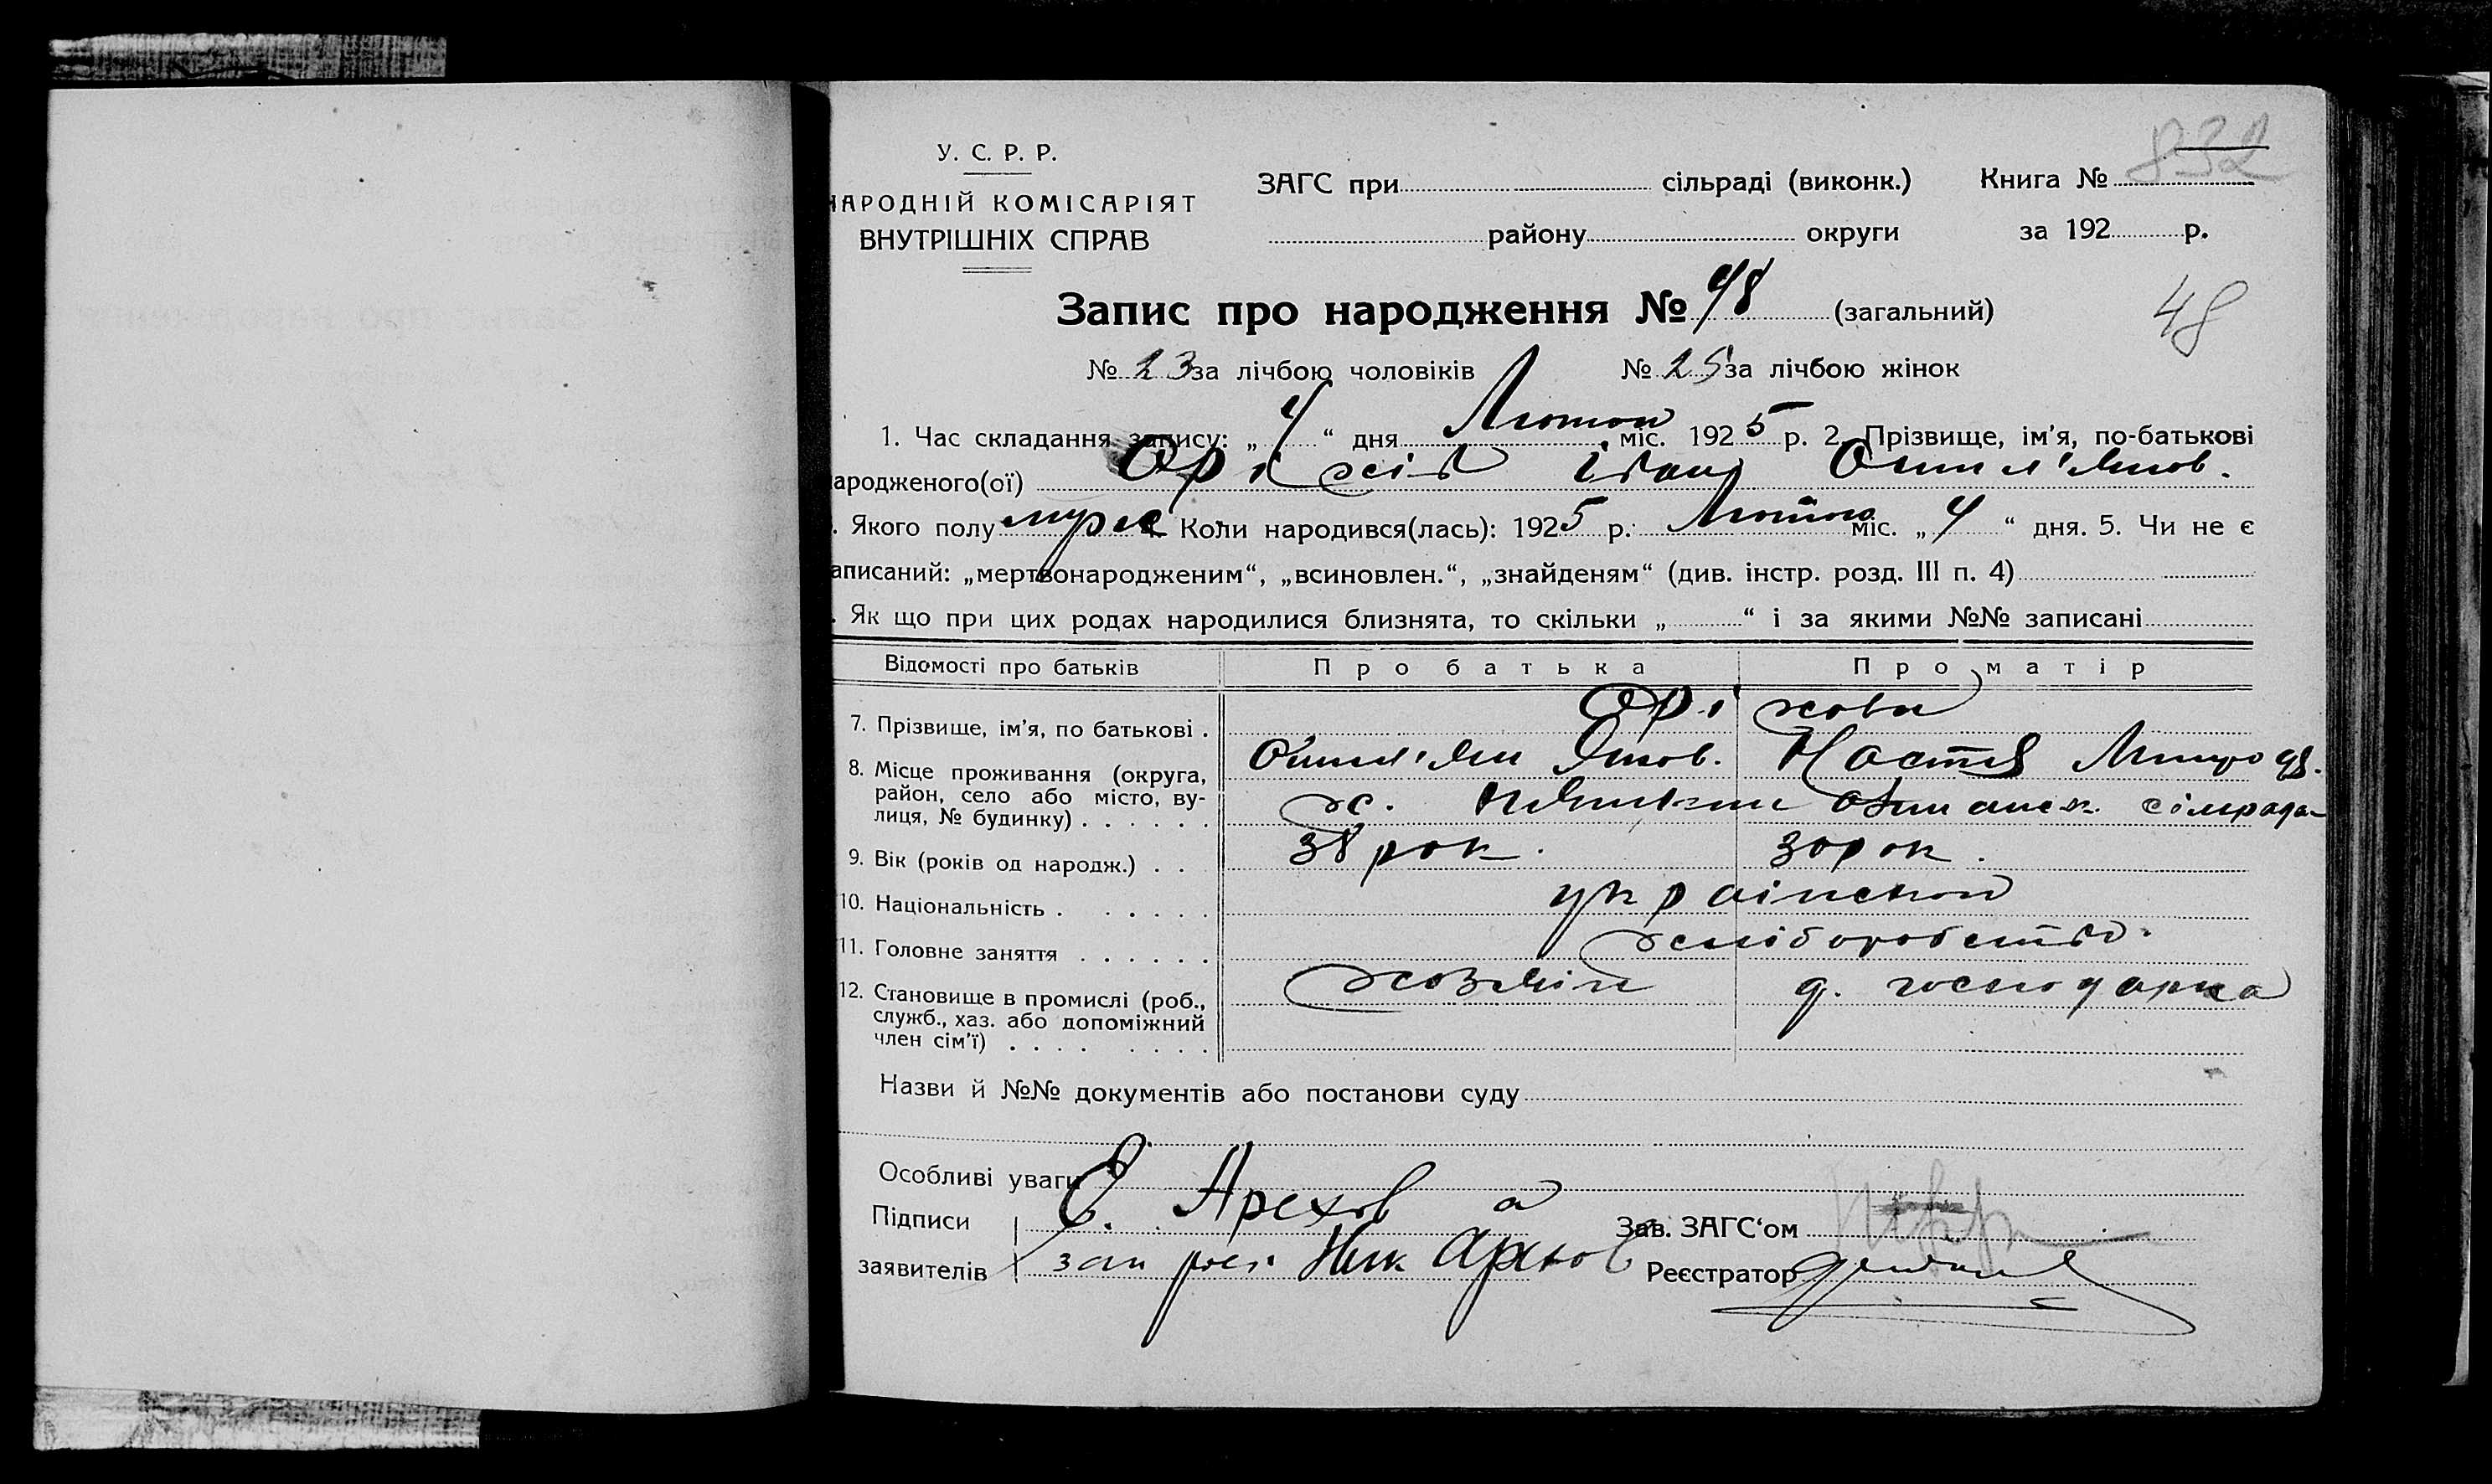 832
У. С. Р. Р.
НАРОДНІЙ КОМІСАРІЯТ
ВНУТРІШНІХ СПРАВ
ЗАГС при сільраді (виконк.) Книга №
району округи за 192 р.
Запис про народження № 48 (загальний)
48
№ 23 за лічбою чоловіків № 25 за лічбою жінок
1. Час складання запису: „ 4 “ дня Лютого міс. 1925 р. 2. Прізвище, ім'я, по-батькові
ародженого(ої) Оріхів Іван
. Якого полу муж Коли народився(лась): 1925 р. Лютого міс. „ 4 “ дня. 5. Чи не є
аписаний: „мертвонародженим“, „всиновлен.“, „знайденям“ (див. інстр. розд. III п. 4)
. Як що при цих родах народилися близнята, то скільки „ “ і за якими №№ записані
Відомості про батьків Про батька Про матір
7. Прізвище, ім'я, по батькові . Оріхови
8. Місце проживання (округа, район, село або місто, вулиця, № будинку) Настя х. сільрада
9. Вік (років од народж.) 38 рок. 30 рок.
10. Національність . української
11. Головне заняття хліборобство.
12. Становище в промислі (роб., служб., хаз. або допоміжний член сім'ї) хозяїн д. господарка
Назви й №№ документів або постанови суду
Особливі уваги
Підписи Є. Арехов а Зав. ЗАГС‘ом
заявителів Ник Арехов Реєстратор